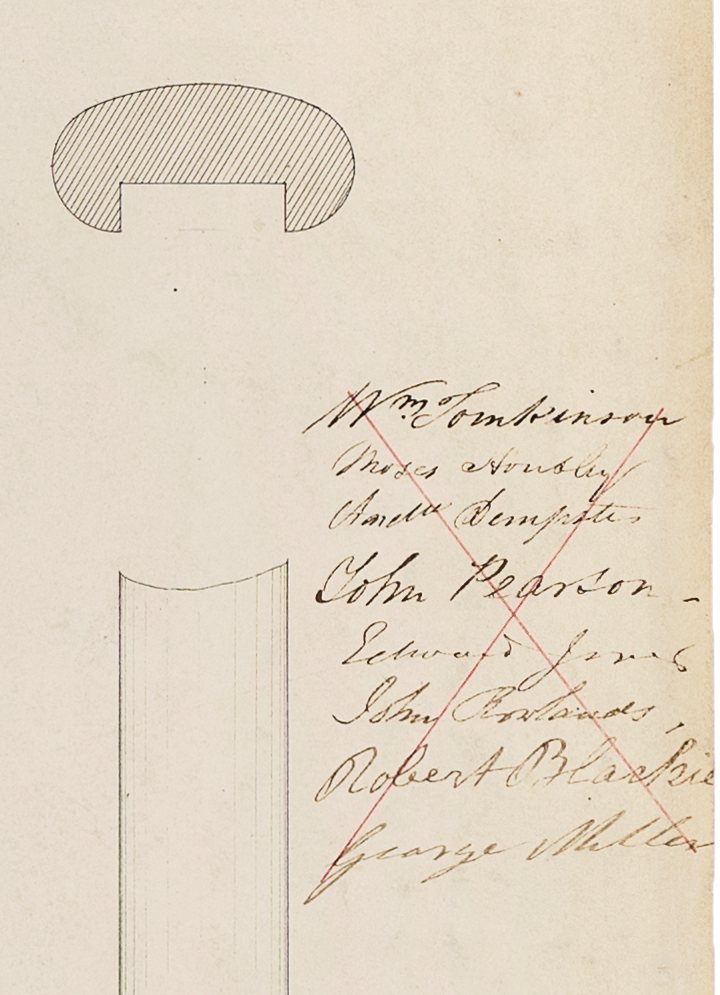 Wm Tomkinson
Moses
Dempster
John Pearson -
Edward Jones
John Rowlands,
Robert Blackie
George Miller